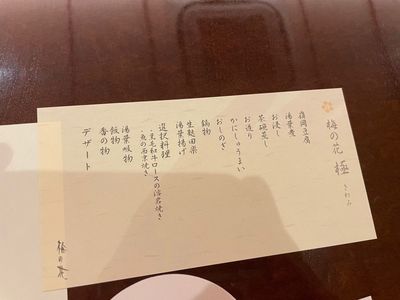 梅の花 極
きわみ
嶺岡豆腐
湯葉煮
お浸し
茶碗蒸し
お造り
かにしゅうまい
おしのぎ
鍋物
生麩田楽
湯葉揚げ
選択料理
・黒毛和牛ロースの溶岩焼き
・魚の西京焼き
湯葉吸物
飯物
香の物
デザート
梅の花